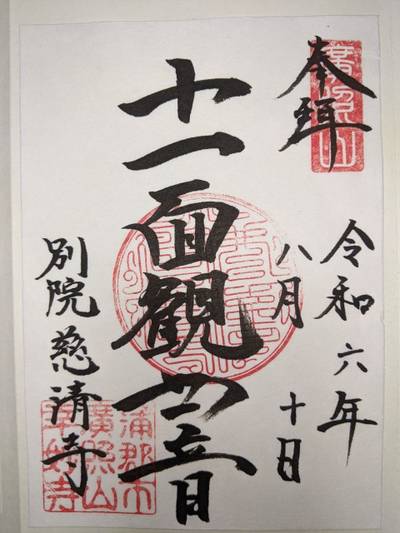 奉拝
廣照山
令和六年
八月十日
十一面観世音
別院慈清寺
蒲郡市
廣照山